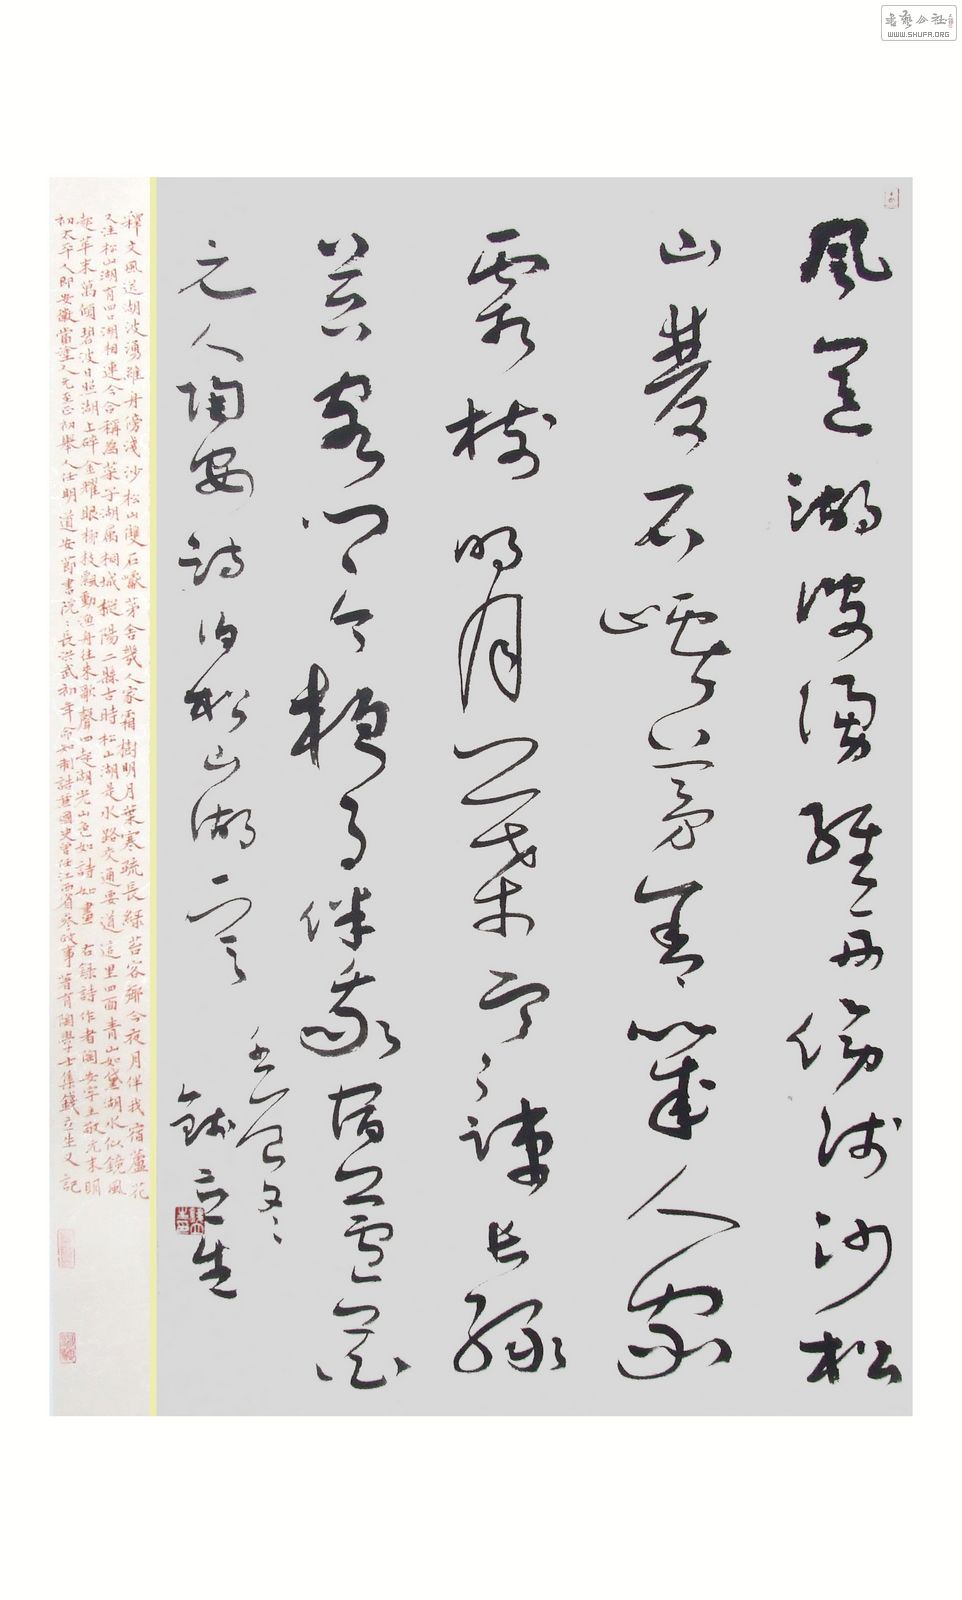 風送湖波湧維舟傍淺沙松
山雙石峽茅舍幾人家
霜樹明月葉寒疏長綠
苔客鄉今夜月伴我宿蘆花
元人陶安詩泊松山湖一首
錢立生
釋文風送湖波湧維舟傍淺沙松山雙石峽茅舍幾人家霜樹明月葉寒疏長綠苔客鄉今夜月伴我宿蘆花
又注松山湖有四口湖相連今合稱為菜子湖屬桐城樅陽二縣古時松山湖是水路交通要道這里四面青山如黛湖水似鏡風
起苹末萬傾碧波日照湖上碎金耀眼柳枝飄動漁舟往來歌聲四起湖光山色如詩如畫 右錄詩作者陶安字主敬元末明
初太平人即安徽當塗人元至正初舉人任明道安節書院院長洪武初年命知制誥兼國史曾任江西省參政事著有陶學士集錢立生又記
書藝公社
WWW.SHUFA.ORG